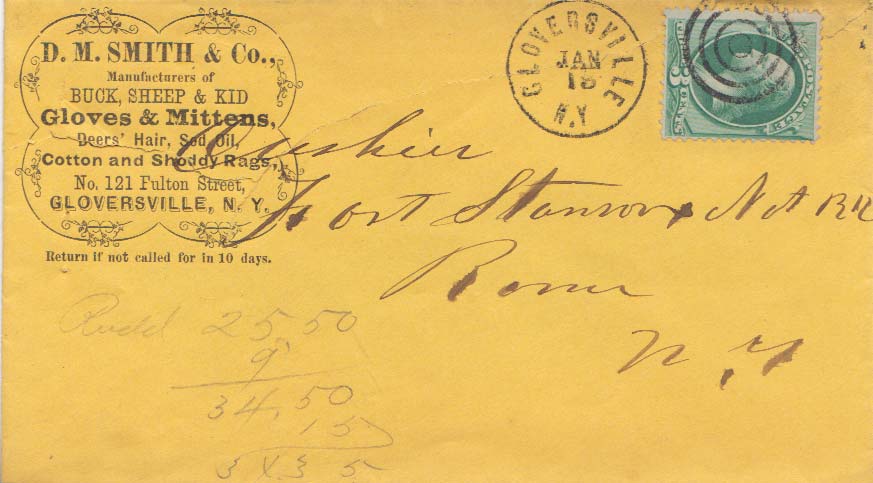 D. M. SMITH & Co.,
Manufacturers of
BUCK, SHEEP & KID
Gloves & Mittens,
Deers' Hair, Sod Oil,
Cotton and Shoddy Rags,
No. 121 Fulton Street,
GLOVERSVILLE, N. Y.
Return if not called for in 10 days.
GLOVERSVILLE
JAN
18
N.Y
POSTAGE
Cashier
Fort Stanwix Nat Bk
Rome
N. Y
25.50
9
34.50
15